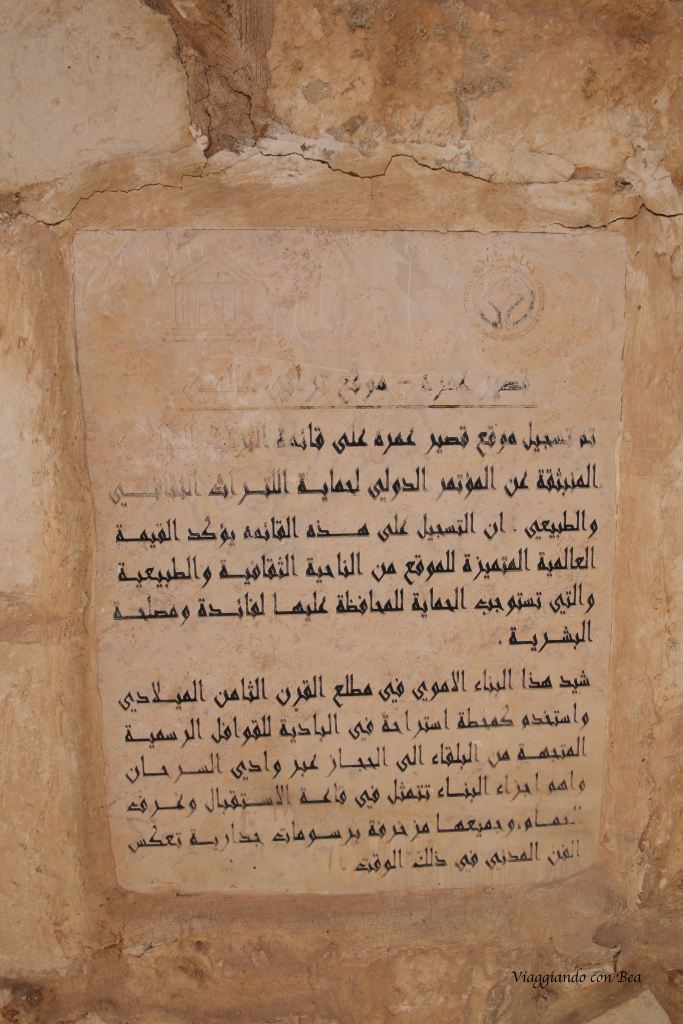 UNESCO
قصير عمره - موقع تراثي عالمي
تم تسجيل موقع قصير عمره على قائمة التراث
المنبثقة عن المؤتمر الدولي لحماية التراث الثقافي
والطبيعي . ان التسجيل على هذه القائمه يؤكد القيمة
العالمية المتميزة للموقع من الناحية الثقافية والطبيعية
والتي تستوجب الحماية للمحافظة عليها لفائدة ومصلحة
البشرية .
شيد هذا البناء الاموي في مطلع القرن الثامن الميلادي
واستخدم كمحطة استراحة في البادية للقوافل الرسمية
المتجهة من البلقاء الى الحجاز عبر وادي السرحان
واهم اجزاء البناء تتمثل في قاعة الاستقبال وغرف
الحمام، وجميعها مزخرفة برسومات جدارية تعكس
الفن المدني في ذلك الوقت .
Viaggiando con Bea